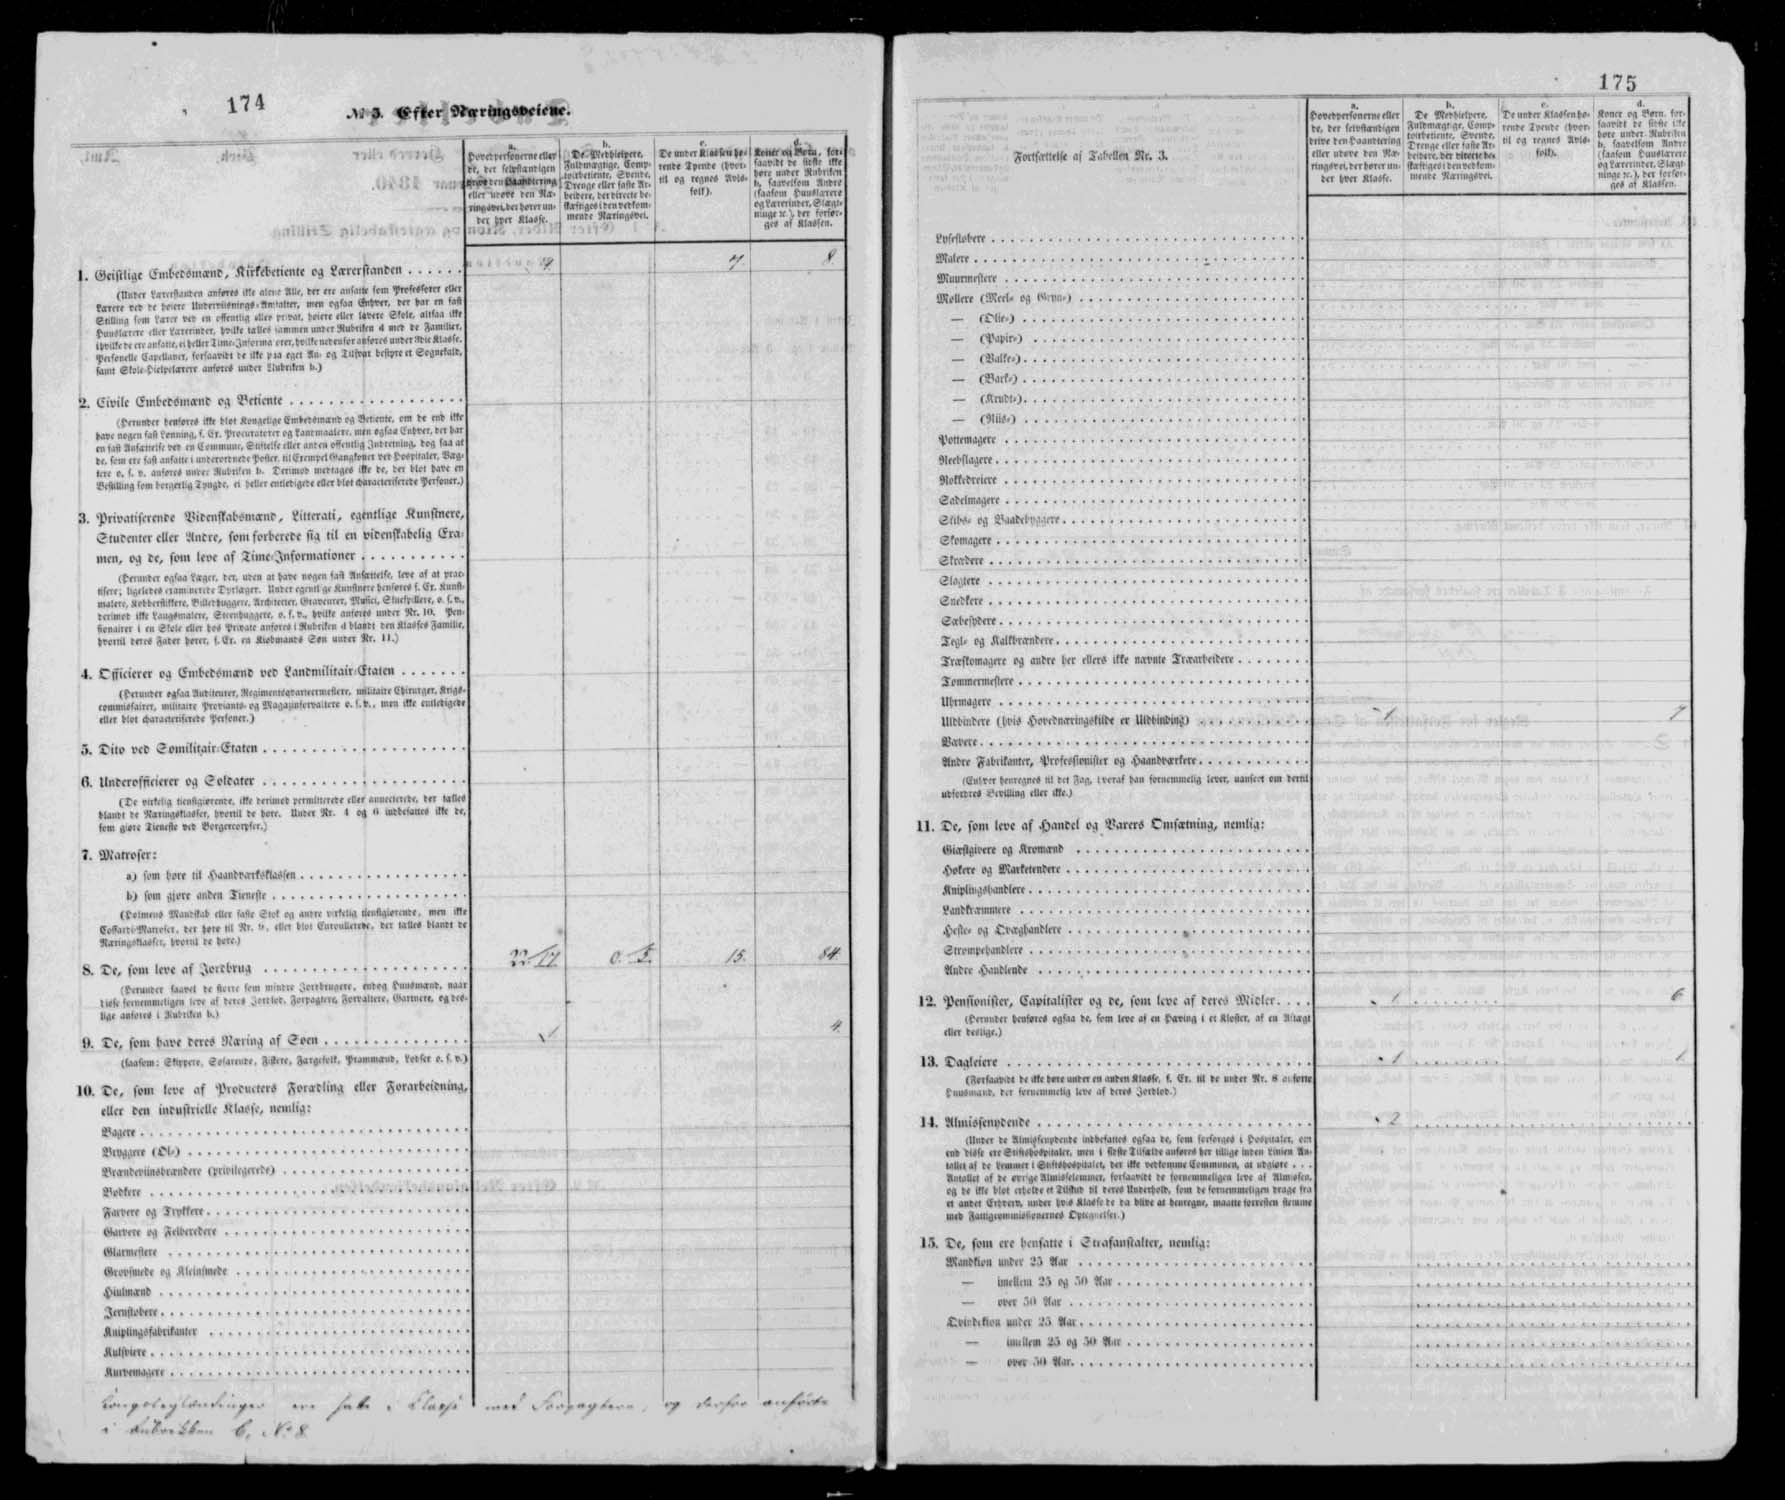 174
№ 3. Efter Næringsveiene.
a.
Hovedpersonerne eller
de, der selvstændigen
drive den Haandtering
eller udøve den Næ-
ringsvei, der hører un-
der hver Klasse.
b.
De Medhielpere,
Fuldmægtige, Comp-
toirbetiente, Svende,
Drenge eller faste Ar-
beidere, der directe be-
skæftiges i den vedkom-
mende Næringsvei.
c.
De under Klassen hø-
rende Tyende (hvor-
til og regnes Avls-
folk).
d.
Koner og Børn, for-
saavidt de sidste ikke
høre under Rubriken
b, saavelsom Andre
(saasom Huuslærere
og Lærerinder, Slægt-
ninge ꝛc.), der forsør-
ges af Klassen.
1. Geistlige Embedsmænd, Kirkebetiente og Lærerstanden . . . . . . 7. 8.
(Under Lærerstanden anføres ikke alene Alle, der ere ansatte som Professorer eller
Lærere ved de høiere Underviisnings-Anstalter, men ogsaa Enhver, der har en fast
Stilling som Lærer ved en offentlig eller privat, høiere eller lavere Skole, altsaa ikke
Huuslærere eller Lærerinder, hvilke tælles sammen under Rubriken d med de Familier,
i hvilke de ere ansatte, ei heller Time-Informatorer, hvilke nedenfor anføres under 3die Klasse.
Personelle Capellaner, forsaavidt de ikke paa eget An- og Tilsvar bestyre et Sognekald,
samt Skole-Hielpelærere anføres under Rubriken b.)
2. Civile Embedsmænd og Betiente . . . . . . . . . . . . . . . . . .
(Herunder henføres ikke blot Kongelige Embedsmænd og Betiente, om de end ikke
have nogen fast Lønning, f. Ex. Procuratorer og Landmaalere, men ogsaa Enhver, der har
en fast Ansættelse ved en Commune, Stiftelse eller anden offentlig Indretning, dog saa at
de, som ere fast ansatte i underordnede Poster, til Exempel Gangkoner ved Hospitaler, Væg-
tere o. s. v. anføres under Rubriken b. Derimod medtages ikke de, der blot have en
Bestilling som borgerlig Tyngde, ei heller entledigede eller blot characteriserede Personer.)
3. Privatiserende Videnskabsmænd, Litterati, egentlige Kunstnere,
Studenter eller Andre, som forberede sig til en videnskabelig Exa-
men, og de, som leve af Time-Informationer . . . . . . . . . . .
(Herunder ogsaa Læger, der, uden at have nogen fast Ansættelse, leve af at prac-
tisere; ligeledes examinerede Dyrlæger. Under egentlige Kunstnere henføres f. Ex. Kunst-
malere, Kobberstikkere, Billedhuggere, Architecter, Graveurer, Musici, Skuespillere, o. s. v.,
derimod ikke Laugsmalere, Steenhuggere, o. s. v., hvilke anføres under Nr. 10. Pen-
sionairer i en Skole eller hos Private anføres i Rubriken d blandt den Klasses Familie,
hvortil deres Fader hører, f. Ex. en Kiøbmands Søn under Nr. 11.)
4. Officierer og Embedsmænd ved Landmilitair-Etaten . . . . . . .
(Herunder ogsaa Auditeurer, Regimentsqvarteermestere, militaire Chirurger, Krigs-
commissairer, militaire Proviants- og Magazinforvaltere o. s. v., men ikke entledigede
eller blot characteriserede Personer.)
5. Dito ved Sømilitair-Etaten . . . . . . . . . . . . . . . . . . . .
6. Underofficierer og Soldater . . . . . . . . . . . . . . . . . . . .
(De virkelig tienstgiørende, ikke derimod permitterede eller annecterede, der tælles
blandt de Næringsklasser, hvortil de høre. Under Nr. 4 og 6 indbefattes ikke de,
som giøre Tieneste ved Borgercorpser.)
7. Matroser:
a) som høre til Haandværksklassen . . . . . . . . . . . . . . . . .
b) som giøre anden Tieneste . . . . . . . . . . . . . . . . . . . .
(Holmens Mandskab eller faste Stok og andre virkelig tienstgiørende, men ikke
Coffardi-Matroser, der høre til Nr. 9, eller blot Enroullerede, der tælles blandt de
Næringsklasser, hvortil de høre.)
8. De, som leve af Jordbrug . . . . . . . . . . . . . . . . . . . . 15. 84.
(Herunder saavel de større som mindre Jordbrugere, endog Huusmænd, naar
disse fornemmeligen leve af deres Jordlod, Forpagtere, Forvaltere, Gartnere, og des-
lige anføres i Rubriken b.)
9. De, som have deres Næring af Søen . . . . . . . . . . . . . . . 1 4.
(saasom: Skippere, Søfarende, Fiskere, Færgefolk, Prammænd, Lodser o. s. v.)
10. De, som leve af Producters Forædling eller Forarbeidning,
eller den industrielle Klasse, nemlig:
Bagere . . . . . . . . . . . . . . . . . . . .
Bryggere (Øl-) . . . . . . . . . . . . . . . . . . . .
Brændeviinsbrændere (privilegerede) . . . . . . . . . . . . . . .
Bødkere . . . . . . . . . . . . . . . . . . . .
Farvere og Trykkere . . . . . . . . . . . . . . . . . . . .
Garvere og Felberedere . . . . . . . . . . . . . . . . . . . .
Glarmestere . . . . . . . . . . . . . . . . . . . .
Grovsmede og Kleinsmede . . . . . . . . . . . . . . . . . . . .
Hiulmænd . . . . . . . . . . . . . . . . . . . .
Jernstøbere . . . . . . . . . . . . . . . . . . . .
Kniplingsfabrikanter . . . . . . . . . . . . . . . . . . . .
Kulsviere . . . . . . . . . . . . . . . . . . . .
Kurvemagere . . . . . . . . . . . . . . . . . . . .
ere satte i Classe med Forpagtere, og derfor anførte
i Rubrikken b, No 8
175
Fortsættelse af Tabellen Nr. 3.
a.
Hovedpersonerne eller
de, der selvstændigen
drive den Haandtering
eller udøve den Næ-
ringsvei, der hører un-
der hver Klasse.
b.
De Medhielpere,
Fuldmægtige, Comp-
toirbetiente, Svende,
Drenge eller faste Ar-
beidere, der directe be-
skæftiges i den vedkom-
mende Næringsvei.
c.
De under Klassen hø-
rende Tyende (hvor-
til og regnes Avls-
folk).
d.
Koner og Børn, for-
saavidt de sidste ikke
høre under Rubriken
b, saavelsom Andre
(saasom Huuslærere
og Lærerinder, Slægt-
ninge ꝛc.), der forsør-
ges af Klassen.
Lysestøbere . . . . . . . . . . . . . . . . . . . .
Malere . . . . . . . . . . . . . . . . . . . .
Muurmestere . . . . . . . . . . . . . . . . . . . .
Møllere (Meel- og Gryn-) . . . . . . . . . . . . . . . . . . . .
— (Olie-) . . . . . . . . . . . . . . . . . . . .
— (Papir-) . . . . . . . . . . . . . . . . . . . .
— (Valke-) . . . . . . . . . . . . . . . . . . . .
— (Bark-) . . . . . . . . . . . . . . . . . . . .
— (Krudt-) . . . . . . . . . . . . . . . . . . . .
— (Riis-) . . . . . . . . . . . . . . . . . . . .
Pottemagere . . . . . . . . . . . . . . . . . . . .
Reebslagere . . . . . . . . . . . . . . . . . . . .
Rokkedreiere . . . . . . . . . . . . . . . . . . . .
Sadelmagere . . . . . . . . . . . . . . . . . . . .
Skibs- og Baadebyggere . . . . . . . . . . . . . . . . . . . .
Skomagere . . . . . . . . . . . . . . . . . . . .
Skrædere . . . . . . . . . . . . . . . . . . . .
Slagtere . . . . . . . . . . . . . . . . . . . .
Snedkere . . . . . . . . . . . . . . . . . . . .
Sæbesydere . . . . . . . . . . . . . . . . . . . .
Tegl- og Kalkbrændere . . . . . . . . . . . . . . . . . . . .
Træskomagere og andre her ellers ikke nævnte Træarbeidere . . . . . . .
Tømmermestere . . . . . . . . . . . . . . . . . . . .
Uhrmagere . . . . . . . . . . . . . . . . . . . .
Uldbindere (hvis Hovednæringskilde er Uldbinding) . . . . . . . . . . 1 7
Vævere . . . . . . . . . . . . . . . . . . . .
Andre Fabrikanter, Professionister og Haandværkere . . . . . . . . . . .
(Enhver henregnes til det Fag, hvoraf han fornemmelig lever, uanseet om dertil
udfordres Bevilling eller ikke.)
11. De, som leve af Handel og Varers Omsætning, nemlig:
Giæstgivere og Kromænd . . . . . . . . . . . . . . . . . . . .
Høkere og Marketendere . . . . . . . . . . . . . . . . . . . .
Kniplingshandlere . . . . . . . . . . . . . . . . . . . .
Landkræmmere . . . . . . . . . . . . . . . . . . . .
Heste- og Qvæghandlere . . . . . . . . . . . . . . . . . . . .
Strømpehandlere . . . . . . . . . . . . . . . . . . . .
Andre Handlende . . . . . . . . . . . . . . . . . . . .
12. Pensionister, Capitalister og de, som leve af deres Midler . . . . 1 6
(Herunder henføres ogsaa de, som leve af en Hæving i et Kloster, af en Aftægt
eller deslige.)
13. Dagleiere . . . . . . . . . . . . . . . . . . . . 1 1.
(Forsaavidt de ikke høre under en anden Klasse, f. Ex. til de under Nr. 8 anførte
Huusmænd, der fornemmelig leve af deres Jordlod.)
14. Almissenydende . . . . . . . . . . . . . . . . . . . . 2
(Under de Almissenydende indbefattes ogsaa de, som forsørges i Hospitaler, om
end disse ere Stiftshospitaler, men i sidste Tilfælde anføres her tillige inden Linien An-
tallet af de Lemmer i Stiftshospitalet, der ikke vedkomme Communen, at udgiøre . . .
Antallet af de øvrige Almisselemmer, forsaavidt de fornemmeligen leve af Almissen,
og de ikke blot erholde et Tilskud til deres Underhold, som de fornemmeligen drage fra
et andet Erhverv, under hvis Klasse de da blive at henregne, maatte forresten stemme
med Fattigcommissionernes Optegnelser.)
15. De, som ere hensatte i Strafanstalter, nemlig:
Mandkiøn under 25 Aar . . . . . . . . . . . . . . . . . . . .
— imellem 25 og 50 Aar . . . . . . . . . . . . . . . . . . . .
— over 50 Aar . . . . . . . . . . . . . . . . . . . .
Qvindekiøn under 25 Aar . . . . . . . . . . . . . . . . . . . .
— imellem 25 og 50 Aar . . . . . . . . . . . . . . . . . . . .
— over 50 Aar . . . . . . . . . . . . . . . . . . . .